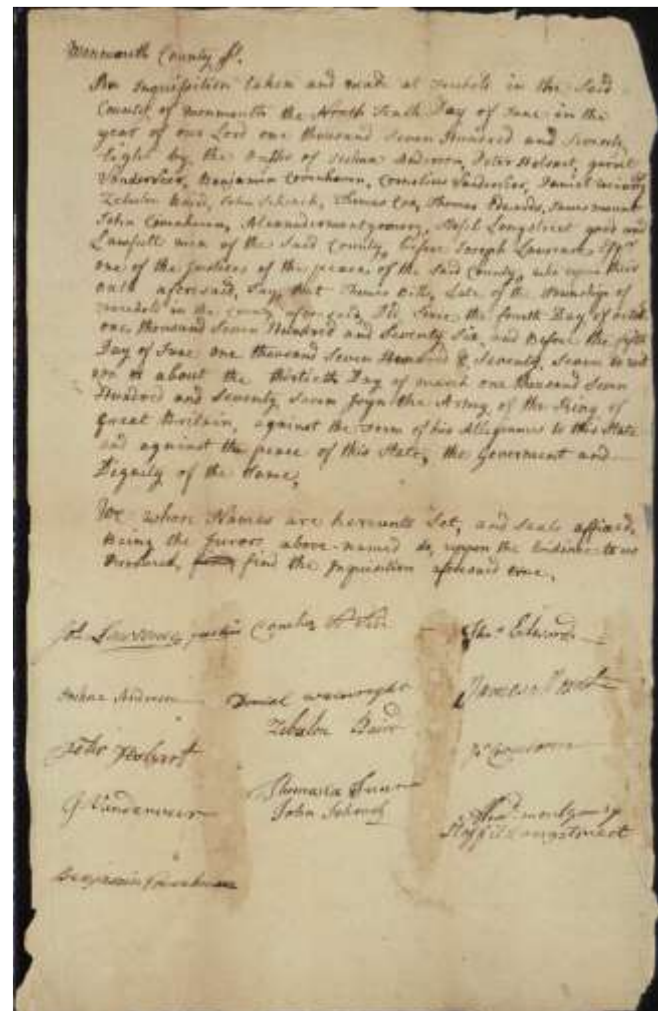 Monmouth County ss.
An Inquisition taken and made at in the Said
County of Monmouth the Day of June in the
year of our Lord one thousand Seven Hundred and Seventy
Eight by the Oaths of Joshua Anderson, Peter
Vanderveer, Benjamin Covenhoven, Cornelius Vanderveer, Daniel
Zebulon Baird, John Schenck, Thomas Cox, Thomas Edwards, James mount
John Covenhoven, Alexander montgomery, Longstreet good and
Lawfull men of the Said County, before Joseph Lawrence Esqr
one of the Justices of the peace of the Said County, who upon their
Oath aforesaid, Say, that Thomas Late of the Township of
in the County aforesaid, Did Since the fourth Day of
one, thousand Seven Hundred and Seventy Six, and Before the fifth
Day of June one thousand Seven Hundred & Seventy, Seven to wit
on or about the thirtieth Day of march one thousand Seven
Hundred and Seventy Seven Joyn the Army of the King of
Great Britain, against the form of his Allegiance to this State
and against the peace of this State, the Goverment and
Dignity of the Same,
We whose Names are hereunto Set, and Seals affixed,
Being the Jurors above-named do, uppon the Evidence to us
find the Inquisition aforesaid true,
Jos Lawrence justice
Joshua Anderson
Benjamin
Daniel wainright
Zebulon Baird
John Schenck
Thos Edwards
James Mount
montgomery
Longstreet